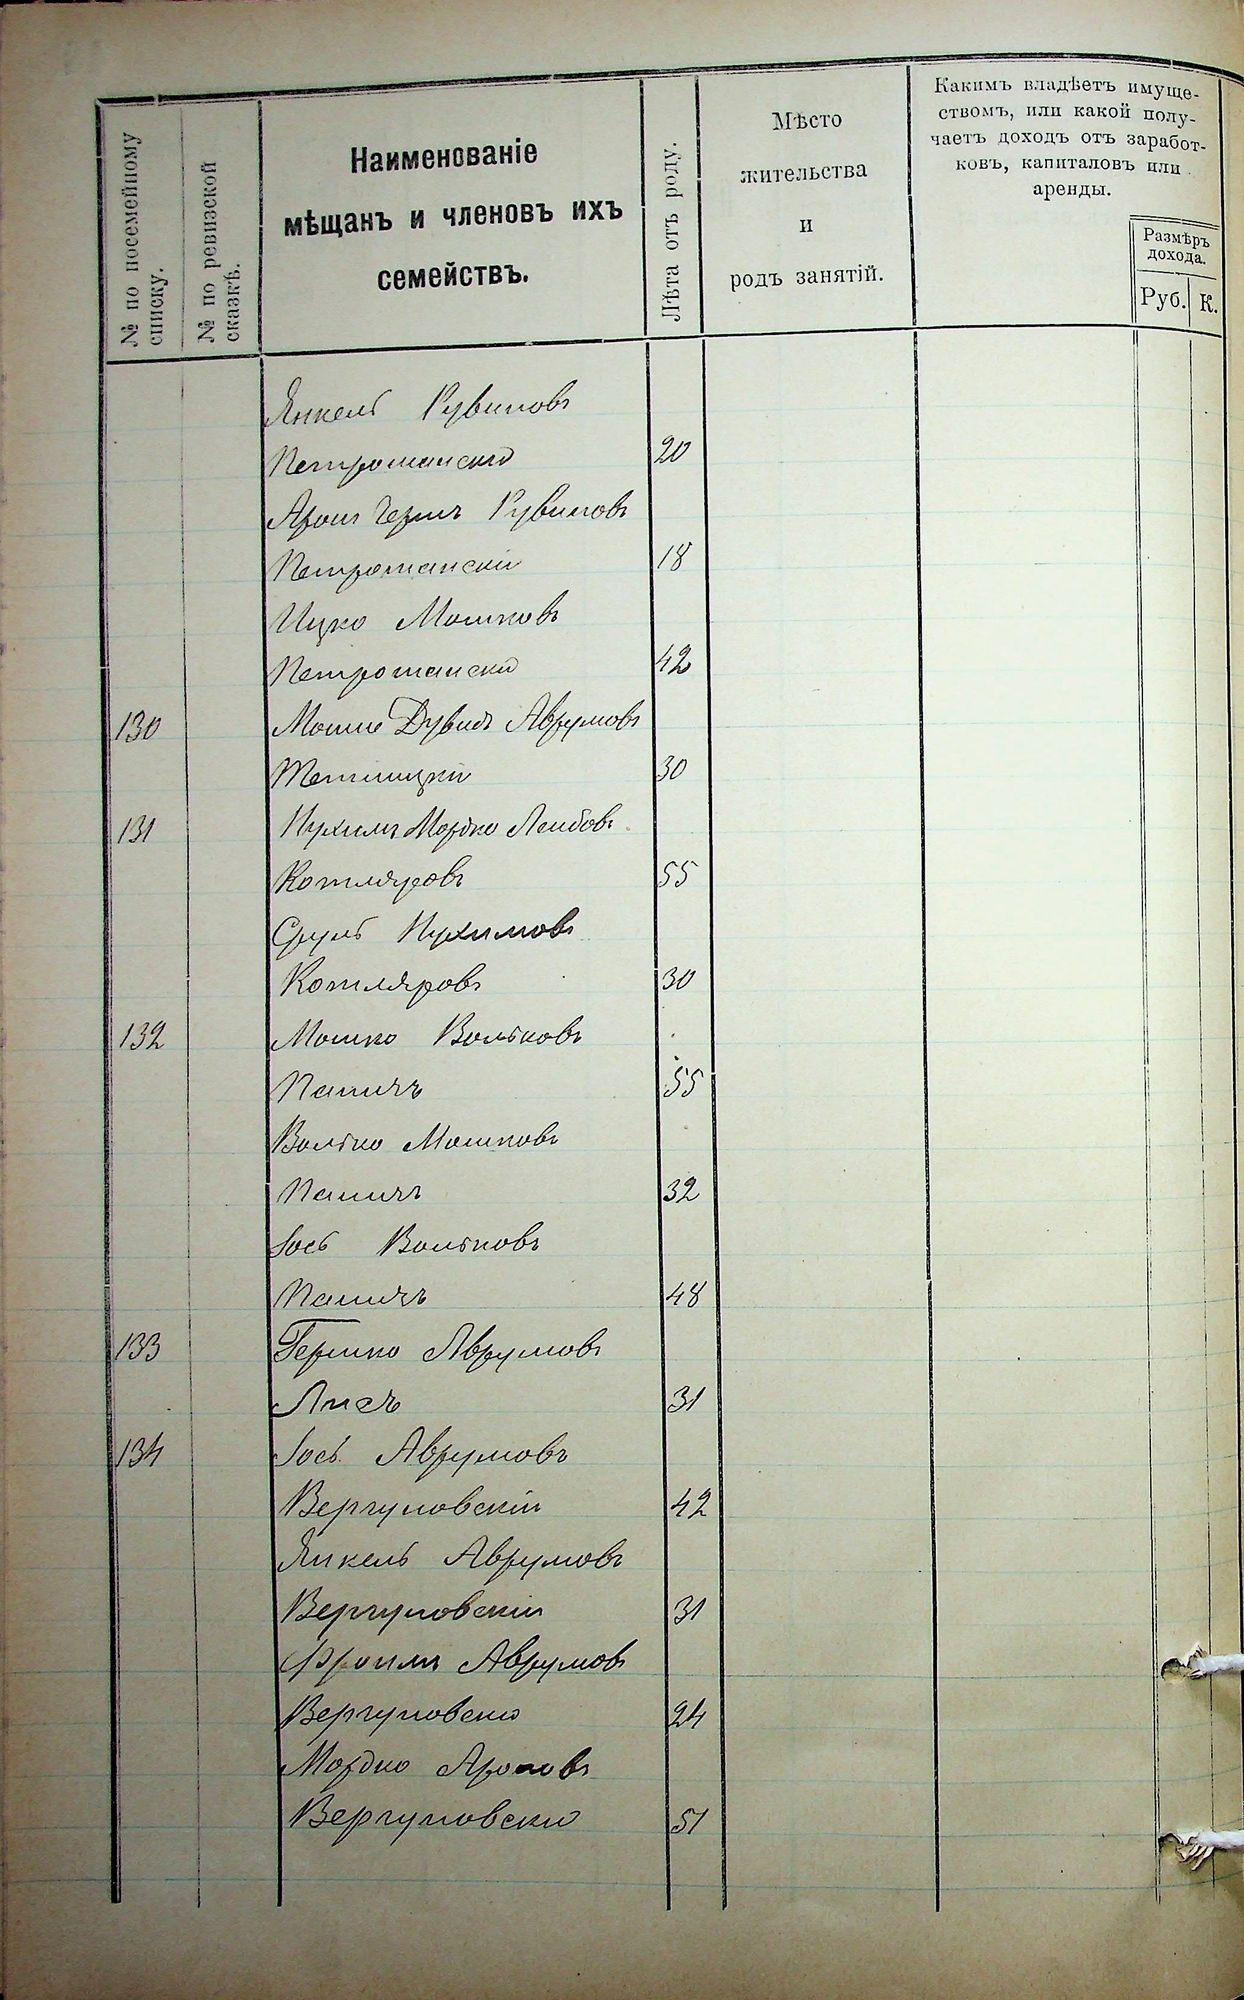 № по посемейному списку.
№ по ревизской сказкѣ.
Наименованіе
мѣщанъ и членовъ ихъ
семействъ.
Лѣта отъ роду.
Мѣсто
жительства
и
родъ занятій.
Какимъ владѣетъ имуще-
ствомъ, или какой полу-
чаетъ доходъ отъ заработ-
ковъ, капиталовъ или
аренды.
Размѣръ
дохода.
Руб. К.
Янкель Рувиновъ
Петрошанскій 20
Арон Герш Рувиновъ
Петрошанскій 18
Ицко Мошковъ
Петрошанскій 42
130 Мошко Дувидъ Аврумовъ
Теплицкій 30
131 Нухимъ Мордко Лейбовъ
Котляровъ 55
Сруль Нухимовъ
Котляровъ 30
132 Мошко Вольковъ
Папичъ 55
Волько Мошковъ
Папичъ 32
Іось Вольковъ
Папичъ 48
133 Гершко Аврумовъ
Лисъ 31
134 Іось Аврумовъ
Вергуновскій 42
Янкель Аврумовъ
Вергуновскій 31
Фроимъ Аврумовъ
Вергуновскій 24
Мордко Ароновъ
Вергуновскій 51